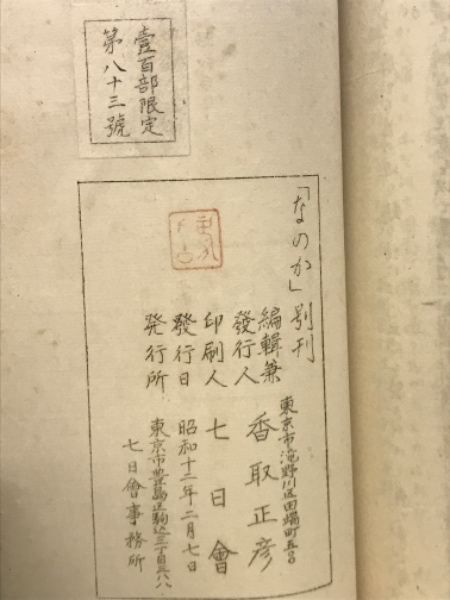 壹百部限定
第八十三號
「なのか」別刊
東京市滝野川区田端町五〇
編輯兼
發行人 香取正彦
印刷人 七日會
發行日 昭和十二年二月七日
発行所 東京市豊島区駒込三丁目三八八
七日會事務所